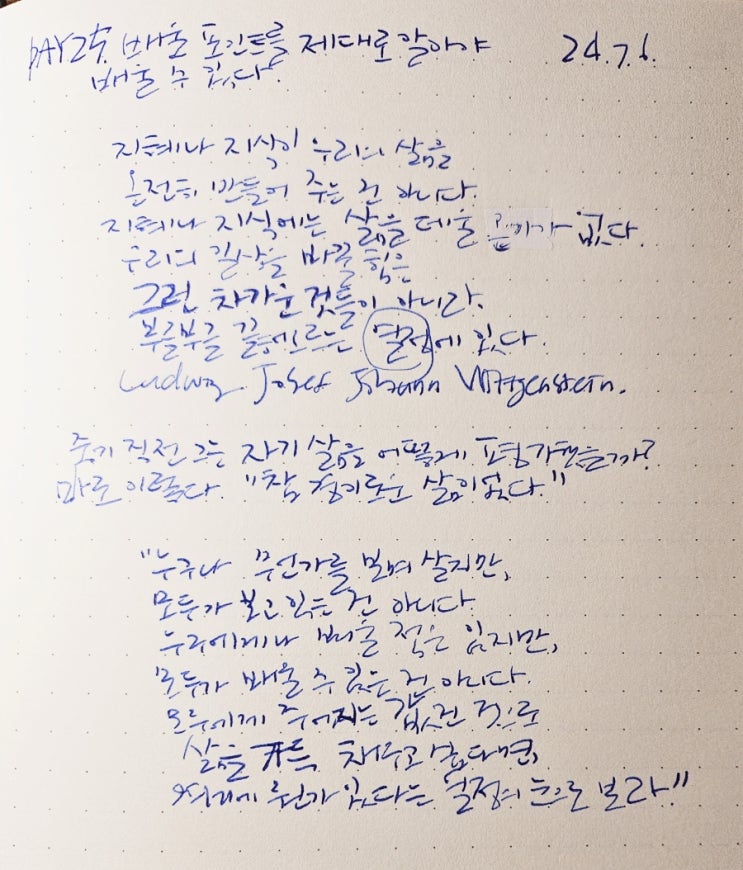 DAY25. 배울 포인트를 제대로 알아야 24.7.6.
배울 수 있다.
지혜나 지식이 우리의 삶을
온전히 만들어 주는 건 아니다.
지혜나 지식에는 삶을 데울 온기가 없다.
우리의 일상을 바꿀 힘은
그런 차가운 것들이 아니라.
부글부글 끓어오르는 열정에 있다.
Ludwig Josef Johann Wittgenstein.
죽기 직전 그는 자기 삶을 어떻게 평가했을까?
바로 이렇다. "참 경이로운 삶이었다."
"누구나 무언가를 보며 살지만,
모두가 보고 있는 건 아니다.
누구에게나 배울 적은 있지만,
모두가 배울 수 있는 건 아니다.
모두에게 주어지는 값진 것으로
삶을 가득 채우고 싶다면,
뭔가 있다는 열정의 눈으로 보라"